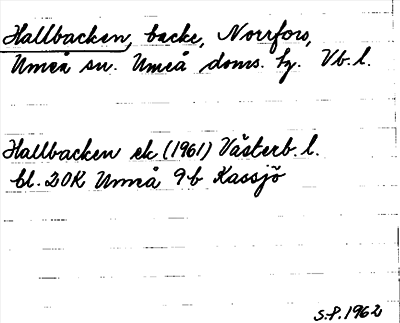 Hallbacken, backe, Norrfors,
Umeå sn. Umeå doms. hg. Vb. l.
Hallbacken ek (1961) Västerb. l.
bl. 20K Umeå 9b Kassjö
S.P. 1962